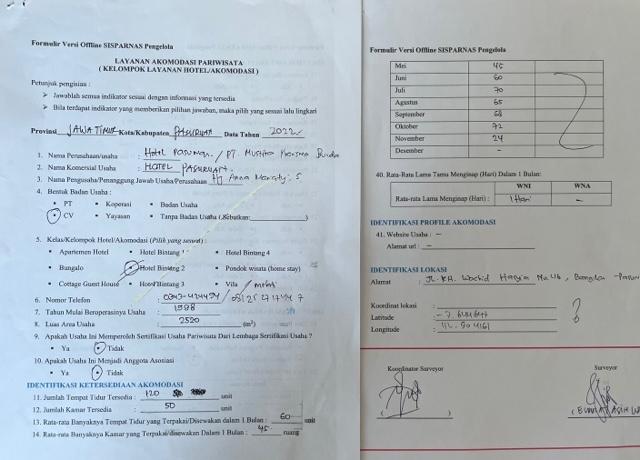 Formulir Versi Offline SISPARNAS Pengelola
LAYANAN AKOMODASI PARIWISATA
( KELOMPOK LAYANAN HOTEL/AKOMODASI )
Petunjuk pengisian :
➤ Jawablah semua indikator sesuai dengan informasi yang tersedia
➤ Bila terdapat indikator yang memberikan pilihan jawaban, maka pilih yang sesuai lalu lingkari
Provinsi JAWA TIMUR Kota/Kabupaten PASURUAN Data Tahun 2022
1. Nama Perusahaan/usaha : Hotel PASURUAN / PT.
2. Nama Komersial Usaha : HOTEL PASURUAN
3. Nama Pengusaha/Penanggung Jawab Usaha/Perusahaan Hj. Anna
4. Bentuk Badan Usaha :
• PT • Koperasi • Badan Usaha
• CV • Yayasan • Tanpa Badan Usaha (Sebutkan: )
5. Kelas/Kelompok Hotel/Akomodasi (Pilih yang sesuai) :
• Apartemen Hotel • Hotel Bintang 1 • Hotel Bintang 4
• Bungalo • Hotel Bintang 2 • Pondok wisata (home stay)
• Cottage Guest House • Hotel Bintang 3 • Vila / melati
6. Nomor Telefon :
7. Tahun Mulai Beroperasinya Usaha : 1988
8. Luas Area Usaha : 2520 (m²)
9. Apakah Usaha Ini Memperoleh Sertifikasi Usaha Pariwisata Dari Lembaga Sertifikasi Usaha ?
• Ya • Tidak
10. Apakah Usaha Ini Menjadi Anggota Asosiasi
• Ya • Tidak
IDENTIFIKASI KETERSEDIAAN AKOMODASI
11. Jumlah Tempat Tidur Tersedia : 120 unit
12. Jumlah Kamar Tersedia : 50 unit
13. Rata-rata Banyaknya Tempat Tidur yang Terpakai/Disewakan dalam 1 Bulan : 60 unit
14. Rata-rata Banyaknya Kamar yang Terpakai/disewakan Dalam 1 Bulan : 45 ruang
Formulir Versi Offline SISPARNAS Pengelola
Mei 45
Juni 60
Juli 70
Agustus 65
September 68
Oktober 72
November 24
Desember -
40. Rata-Rata Lama Tamu Menginap (Hari) Dalam 1 Bulan:
WNI WNA
Rata-rata Lama Menginap (Hari) : 1 Hari -
IDENTIFIKASI PROFILE AKOMODASI
41. Website Usaha : -
Alamat url : -
IDENTIFIKASI LOKASI
Alamat : JL. KH. Wachid Hasyim
Koordinat lokasi :
Latitude :
Longitude :
?
Koordinator Surveyor
Surveyor